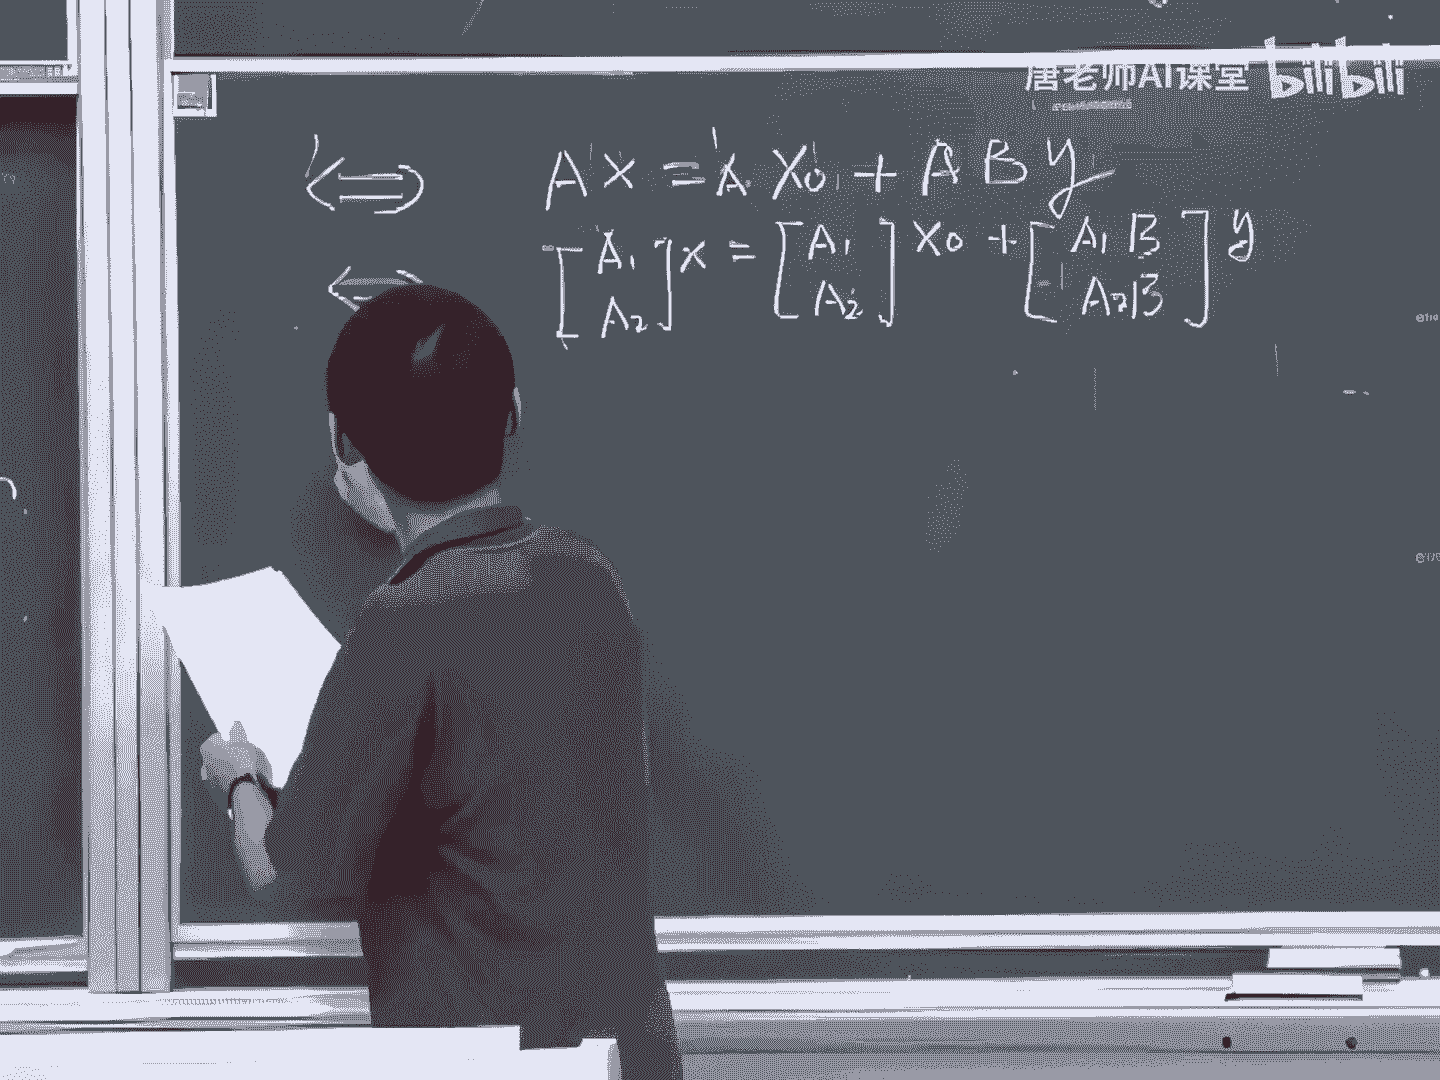 唐老师AI课堂 bilibili
⟺ AX = AX₀ + ABy
⟺ [A₁ A₂] x = [A₁ A₂] X₀ + [A₁B A₂B] y